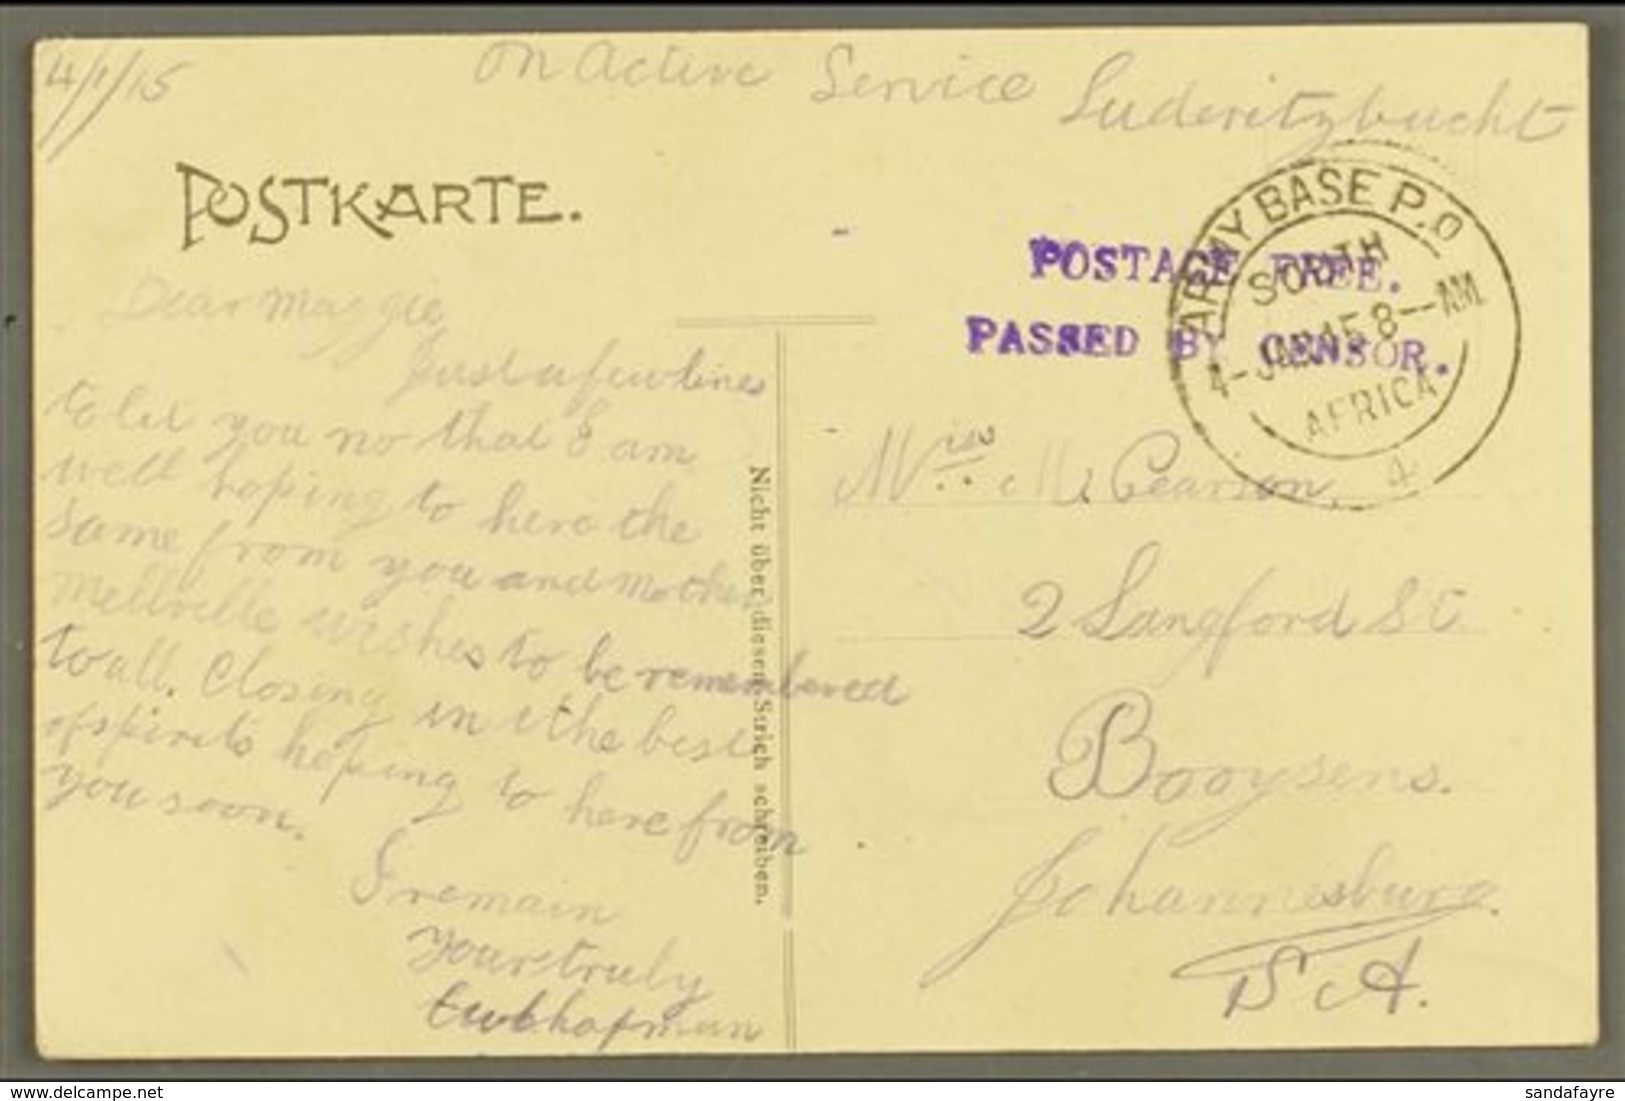 4/1/15
On Active Service Luderitzbucht
POSTKARTE.
ARMY BASE P.O
SOUTH
4-JAN 15 8--AM
AFRICA
4
POSTAGE FREE.
PASSED BY CENSOR.
Dear Maggie
Just a few lines
to let you no that I am
well hoping to here the
same from you and Mother
Mellville wishes to be remembered
to all. Closing in the best
of spirits hoping to here from
you soon.
I remain
yours truly
Chapman
Nicht über diesen Strich schreiben.
Miss M. Pearson,
2 Langford St.
Booysens.
Johannesburg.
S.A.
© delcampe.net
sandafayre